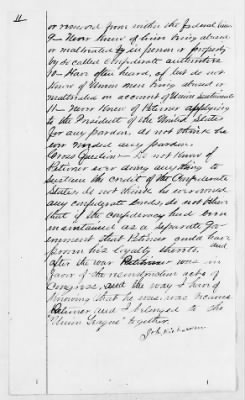 11
or removed from within the Federal lines
9- Never knew of him being abused
or maltreated by in person or property
by so called Confederate authorities
10- Have often heard, of but do not
know of Union men being abused or
maltreated on account of Union sentiments
11- Never knew of Petitioner applying
to the President of the United States
for any pardon. do not think he
ever needed any pardon.
Cross Question - Do not know of
Petitioner ever doing anything to
sustain the credit of the Confederate
States, do not think he ever owned
any Confederate bonds, do not think
that if the confederacy had been
maintained as a separate Gov-
ernment that Petitioner could have
proven his loyalty thereto, and
after the war Petitioner was in
favor of the reconstruction acts of
Congress, and the way I have of
knowing that he was is because
Petitioner and I belonged to the
"Union League" together.